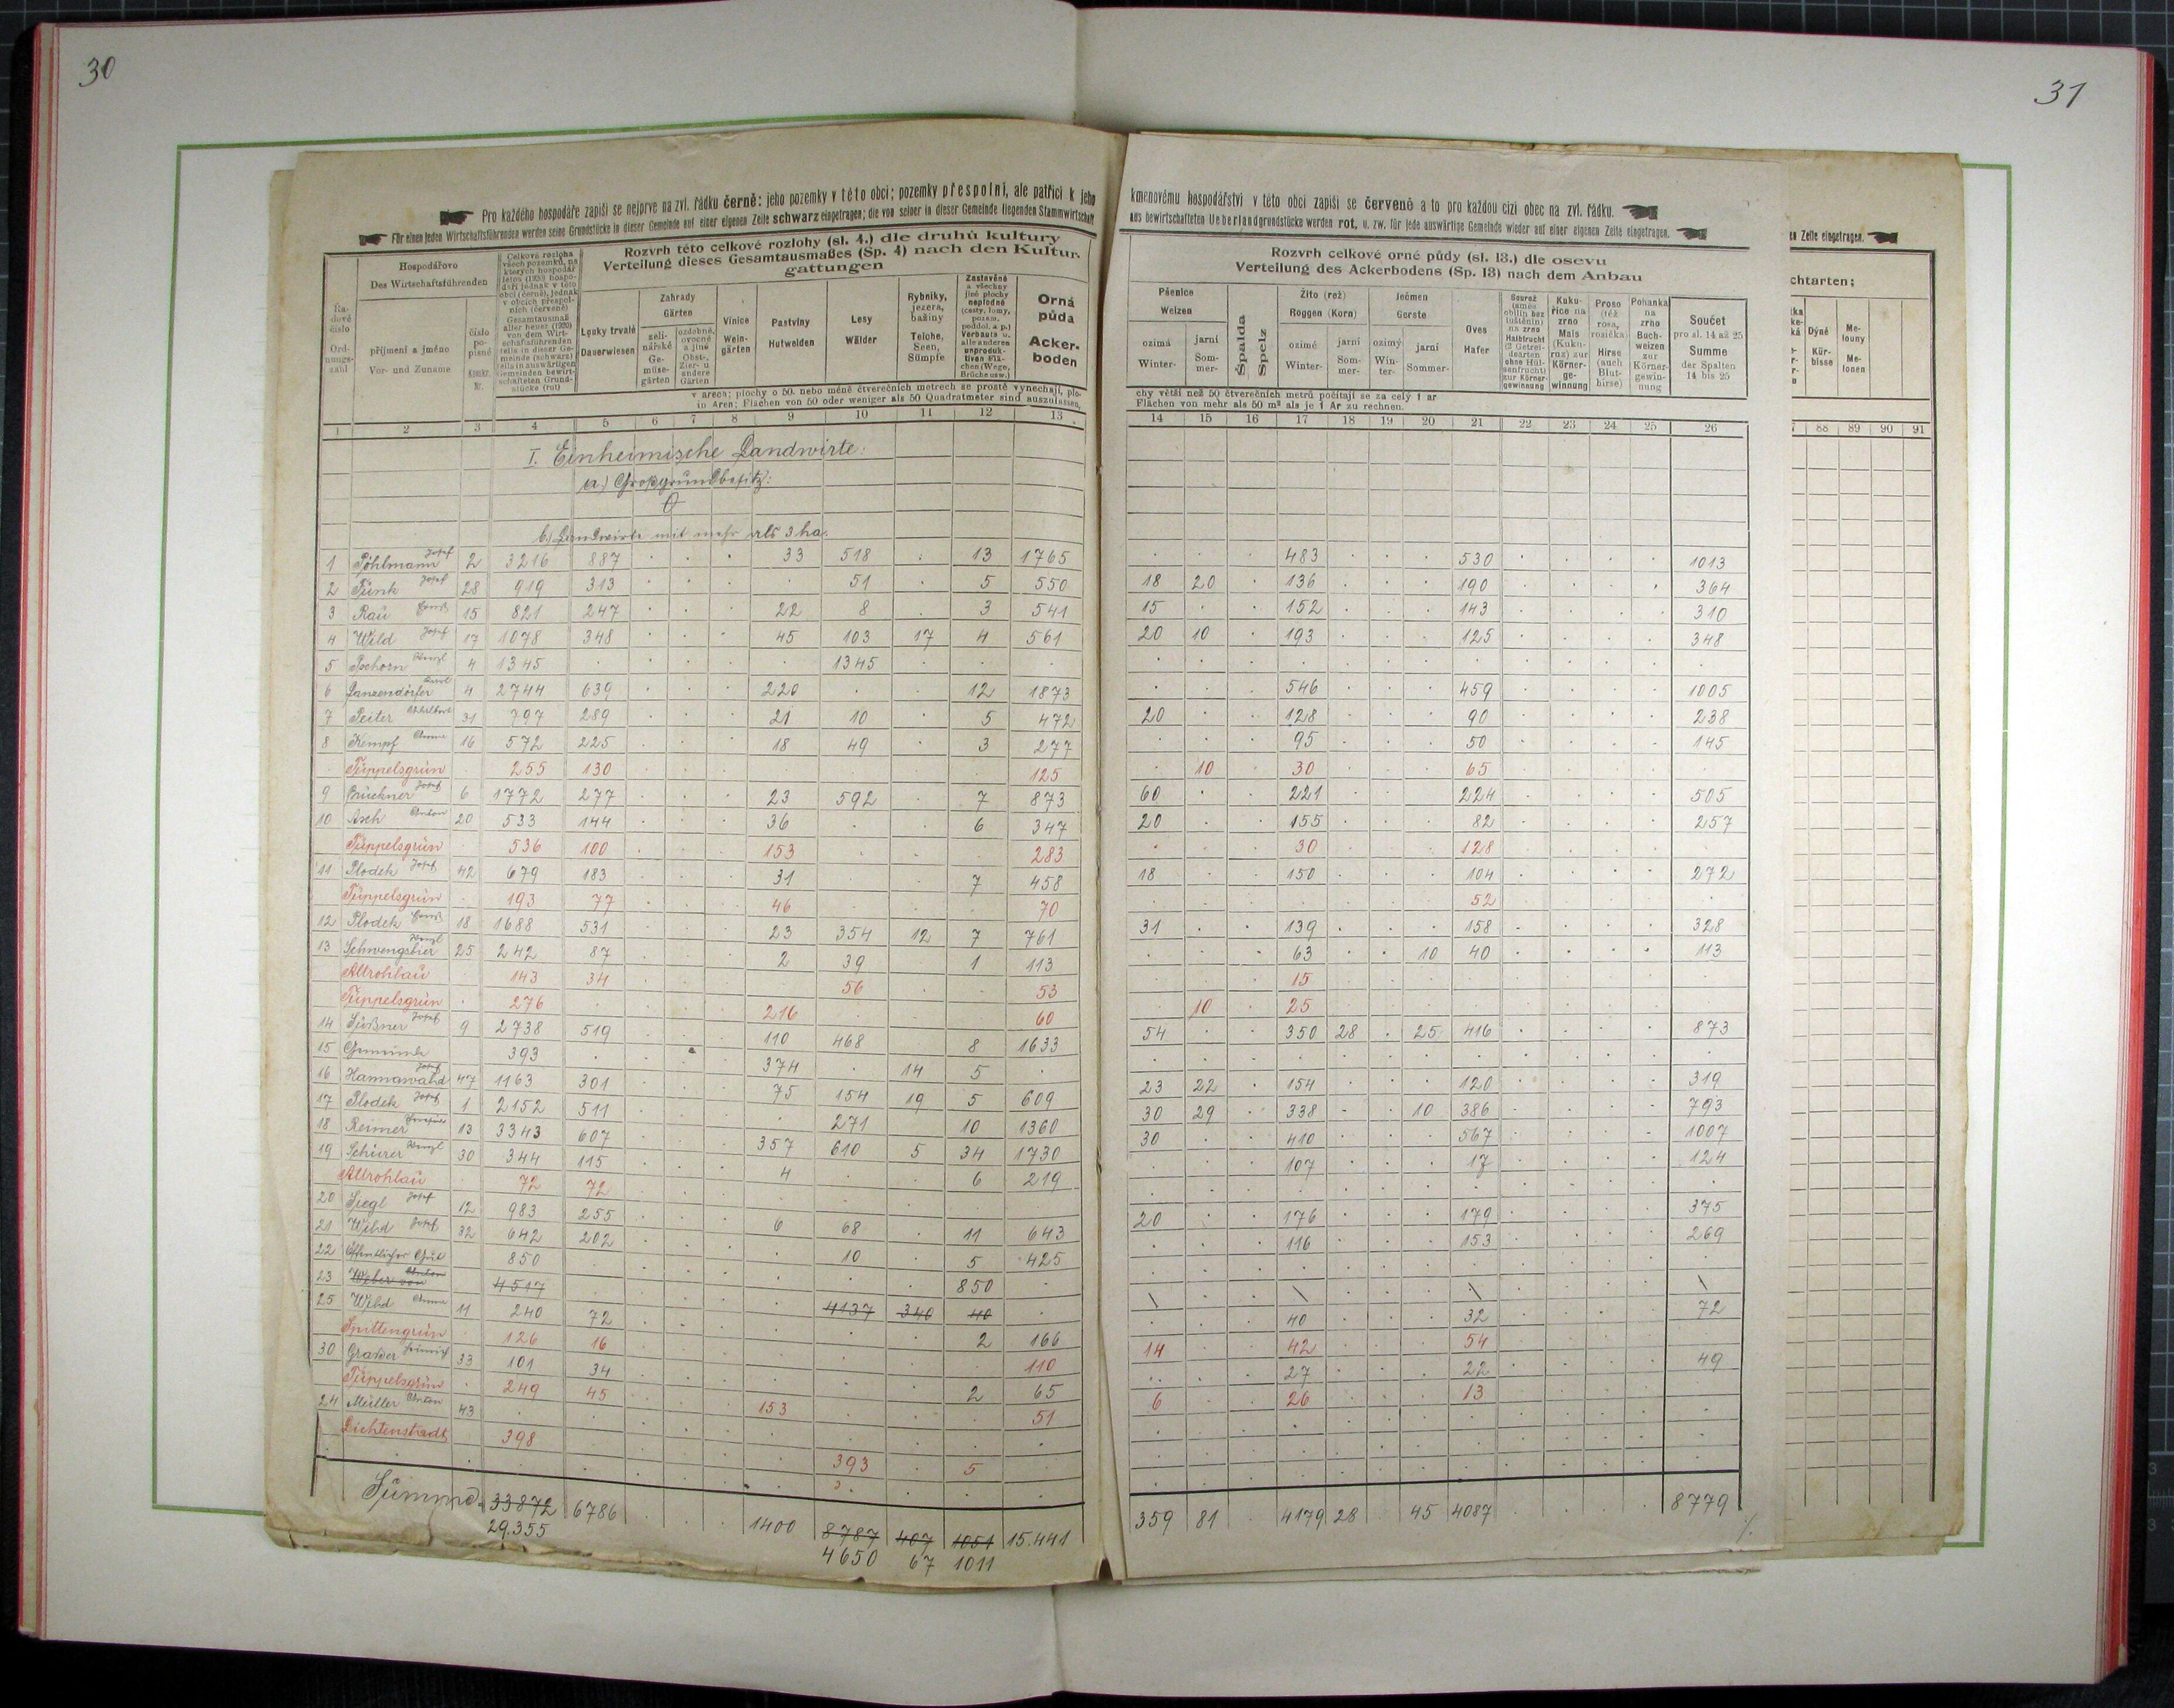 30
31
Pro každého hospodáře zapíši se nejprve na zvl. řádku černě: jeho pozemky v této obci; pozemky přespolní, ale patřící k jeho
Für einen jeden Wirtschaftsführenden werden seine Grundstücke in dieser Gemeinde auf einer eigenen Zeile schwarz eingetragen; die von seiner in dieser Gemeinde liegenden Stammwirtschaft
kmenovému hospodářství v této obci zapíši se červeně a to pro každou cizí obec na zvl. řádku.
aus bewirtschafteten Ueberlandgrundstücke werden rot, u. zw. für jede auswärtige Gemeinde wieder auf einer eigenen Zeile eingetragen.
en Zeile eingetragen.
Řadové číslo Ordnungszahl
Hospodářovo
Des Wirtschaftsführenden
příjmení a jméno
Vor- und Zuname
číslo popisné
Konskr. Nr.
Celková rozloha všech pozemků, na kterých hospodář letos (1920) hospodaří jednak v této obci (černě), jednak v obcích přespolních (červeně)
Gesamtausmaß aller heuer (1920) von dem Wirtschaftsführenden teils in dieser Gemeinde (schwarz) teils in auswärtigen Gemeinden bewirtschafteten Grundstücke (rot)
Rozvrh této celkové rozlohy (sl. 4.) dle druhů kultury
Verteilung dieses Gesamtausmaßes (Sp. 4) nach den Kulturgattungen
Louky trvalé Dauerwiesen
Zahrady Gärten
zelinářské Gemüsegärten
ozdobné, ovocné a jiné Obst-, Zier- u. andere Gärten
Vinice Weingärten
Pastviny Hutweiden
Lesy Wälder
Rybníky, jezera, bažiny Teiche, Seen, Sümpfe
Zastavěné a všechny jiné plochy neplodné (cesty, lomy, pozem. poddol. a p.) Verbaute u. alle anderen unproduktiven Flächen (Wege, Brüche usw.)
Orná půda Ackerboden
v arech; plochy o 50. nebo méně čtverečních metrech se prostě vynechají, plo-
in Aren; Flächen von 50 oder weniger als 50 Quadratmeter sind auszulassen,
Rozvrh celkové orné půdy (sl. 13.) dle osevu
Verteilung des Ackerbodens (Sp. 13) nach dem Anbau
Pšenice Weizen
ozimá Winter-
jarní Sommer-
Špalda Spelz
Žito (rež) Roggen (Korn)
ozimé Winter-
jarní Sommer-
Ječmen Gerste
ozimý Winter-
jarní Sommer-
Oves Hafer
Kukuřice na zrno Mais (Kukuruz) zur Körnergewinnung
Proso (též rosa, rosička) Hirse (auch Bluthirse)
Pohanka na zrno Buchweizen zur Körnergewinnung
Součet pro sl. 14 až 25 Summe der Spalten 14 bis 25
chy větší než 50 čtverečních metrů počítají se za celý 1 ar
Flächen von mehr als 50 m² als je 1 Ar zu rechnen.
chtarten;
Dýně Kürbisse
Melouny Melonen
1 2 3 4 5 6 7 8 9 10 11 12 13
14 15 16 17 18 19 20 21 22 23 24 25 26
88 89 90 91
I. Einheimische Landwirte:
a.) Großgrundbesitz:
0
b.) Landwirte mit mehr als 2 ha.
1 Pöhlmann Josef 2 3216 887 33 518 13 1765 483 530 1013
2 Funk Josef 28 919 313 51 5 550 18 20 136 190 364
3 Rau Ernst 15 821 247 22 8 3 541 15 152 143 310
4 Wild Josef 17 1078 348 45 103 17 4 561 20 10 193 125 348
5 Pschorn Wenzl 4 1345 1345
6 Lanzendörfer Karl 4 2744 639 220 12 1873 546 459 1005
7 Peiter Adalbert 31 797 289 21 10 5 472 20 128 90 238
8 Kempf Anna 16 572 225 18 49 3 277 95 50 145
Tüppelsgrün 255 130 125 10 30 65
9 Brückner Josef 6 1772 277 23 592 7 873 60 221 224 505
10 Asch Anton 20 533 144 36 6 347 20 155 82 257
Tüppelsgrün 536 100 153 283 30 128
11 Plodek Josef 42 679 183 31 7 458 18 150 104 272
Tüppelsgrün 193 77 46 70 52
12 Plodek Ernst 18 1688 531 23 354 12 7 761 31 139 158 328
13 Schwengsbier Wenzl 25 242 87 2 39 1 113 63 10 40 113
Altrohlau 143 34 56 53 15
Tüppelsgrün 276 216 60 10 25
14 Süßner Josef 9 2738 519 110 468 8 1633 54 350 28 25 416 873
15 Gemeinde 393 374 14 5
16 Hannawald Josef 47 1163 301 75 154 19 5 609 23 22 154 120 319
17 Plodek Josef 1 2152 511 271 10 1360 30 29 338 10 386 793
18 Reimer 13 3343 607 357 610 5 34 1730 30 410 567 1007
19 Schürer Wenzl 30 344 115 4 6 219 107 17 124
Altrohlau 72 72
20 Siegl Josef 12 983 255 6 68 11 643 20 176 179 375
21 Wild Josef 32 642 202 10 5 425 116 153 269
22 Öffentliches Gut 850 850
23 Weber von Anton 4517 4137 340 40
25 Wild Anna 11 240 72 2 166 40 32 72
Spittengrün 126 16 110 14 42 54
30 Graßer Heinrich 33 101 34 2 65 27 22 49
Tüppelsgrün 249 45 153 51 6 26 13
24 Müller Anton 43
Lichtenstadt 398 393 5
Summe: 33872 6786 1400 8787 407 1051 15.441 359 81 4179 28 45 4087 8779
29.355 4650 67 1011